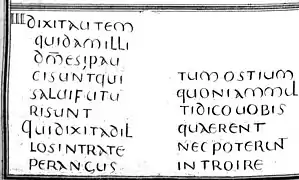 III DIXITAUTEM
QUIDAMILLI
DNESIPAU
CISUNTQUI
SALUIFUTU
RISUNT
QUIDIXITADIL
LOSINTRATE
PERANGUS
TUMOSTIUM
QUONIAMMUL
TIDICOUOBIS
QUAERENT
NECPOTERUNT
INTROIRE